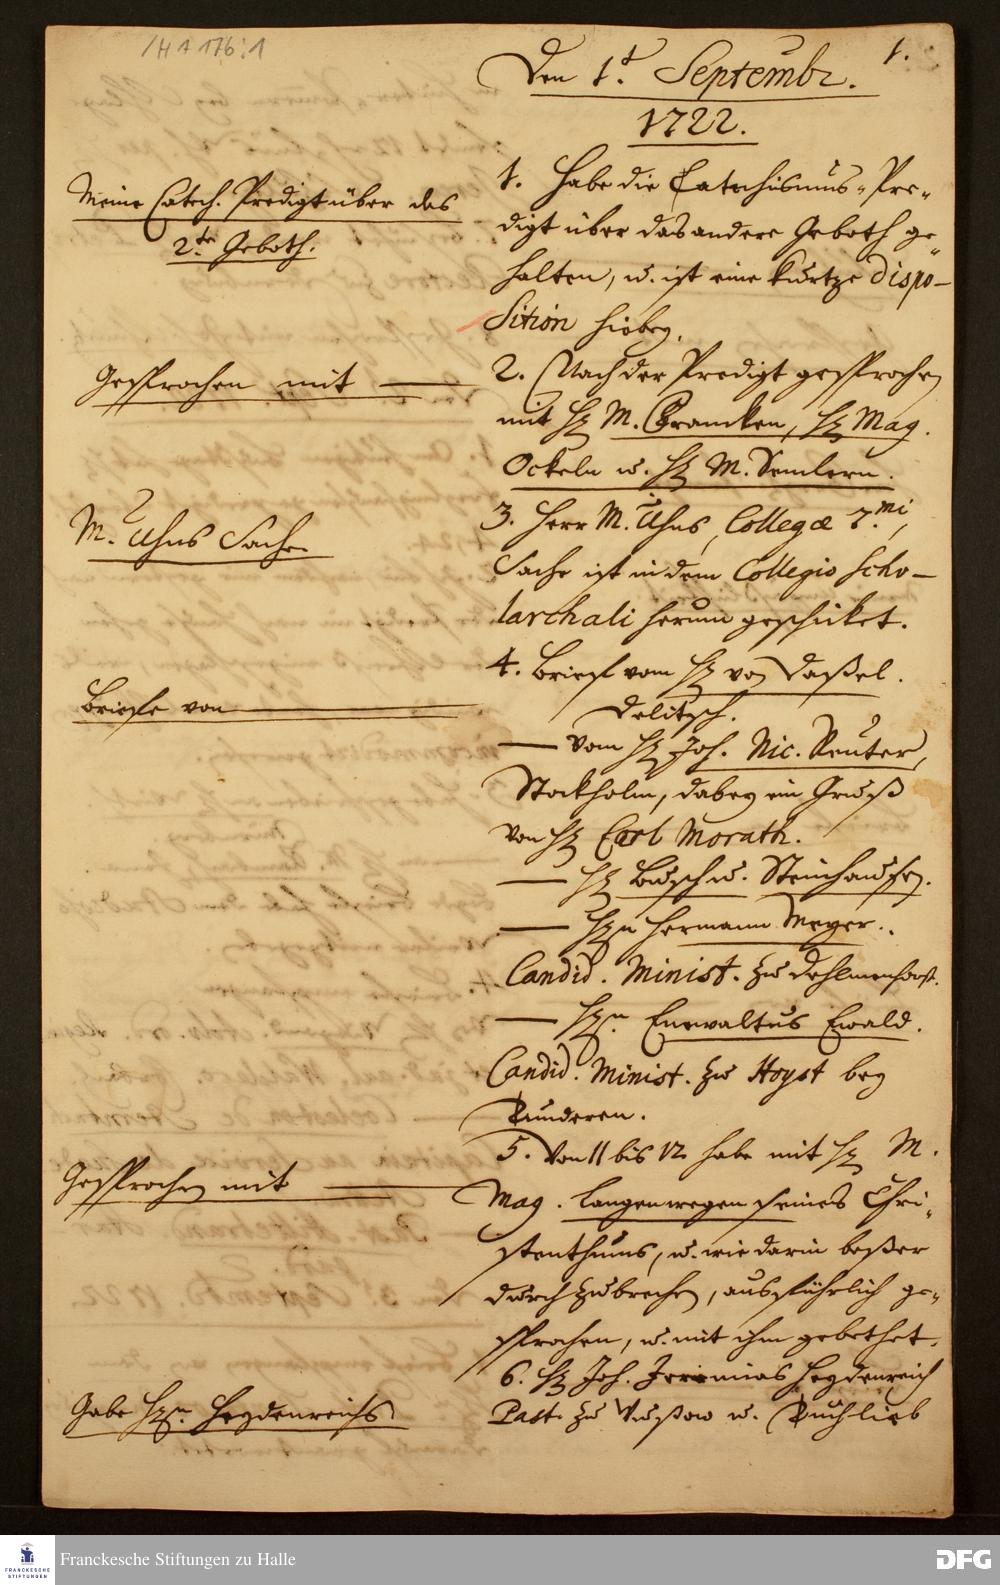 /H A 176:1
1.
Den 1.t Septembr.
1722.
Meine Catech. Predigt über das
2.te Geboth.
1. Habe die Catechismus-Pre-
digt über das andere Geboth ge-
halten, u. ist eine kurtze dispo-
sition hiebey.
Gesprochen mit
2. Nach der Predigt gesprochen
mit H. M. Francken, H. Mag.
Ockeln u. H. M. Semlern.
M. Uhns Sache
3. Herr M. Uhns, Collegæ 7.mi,
Sache ist in dem Collegio Scho-
larchali herum geschicket.
Briefe von
4. Brief vom H. von Daßel.
Delitsch.
— vom H. Joh. Nic. Reuter,
Stockholm, dabey ein Gruß
von H. Carl Morath.
— H. Busch u. Steinhausen.
— H.n Hermann Meyer.
Candid. Minist. zu Dehlmenhorst.
— H.n Enewaltus Ewald.
Candid. Minist. zu Hoyst bey
Tunderen.
Gesprochen mit
5. Von 11 bis 12 habe mit H. M.
Mag. Langen wegen seines Chri-
stenthums, u. wie darin beßer
durchzubrechen, ausführlich ge-
sprochen, u. mit ihm gebethet.
Gabe H.n Heydenreichs
6. H. Joh. Jeremias Heydenreich
Past. zu Wußow u. Puchlieb
Franckesche Stiftungen zu Halle
FRANCKESCHE
STIFTUNGEN
DFG